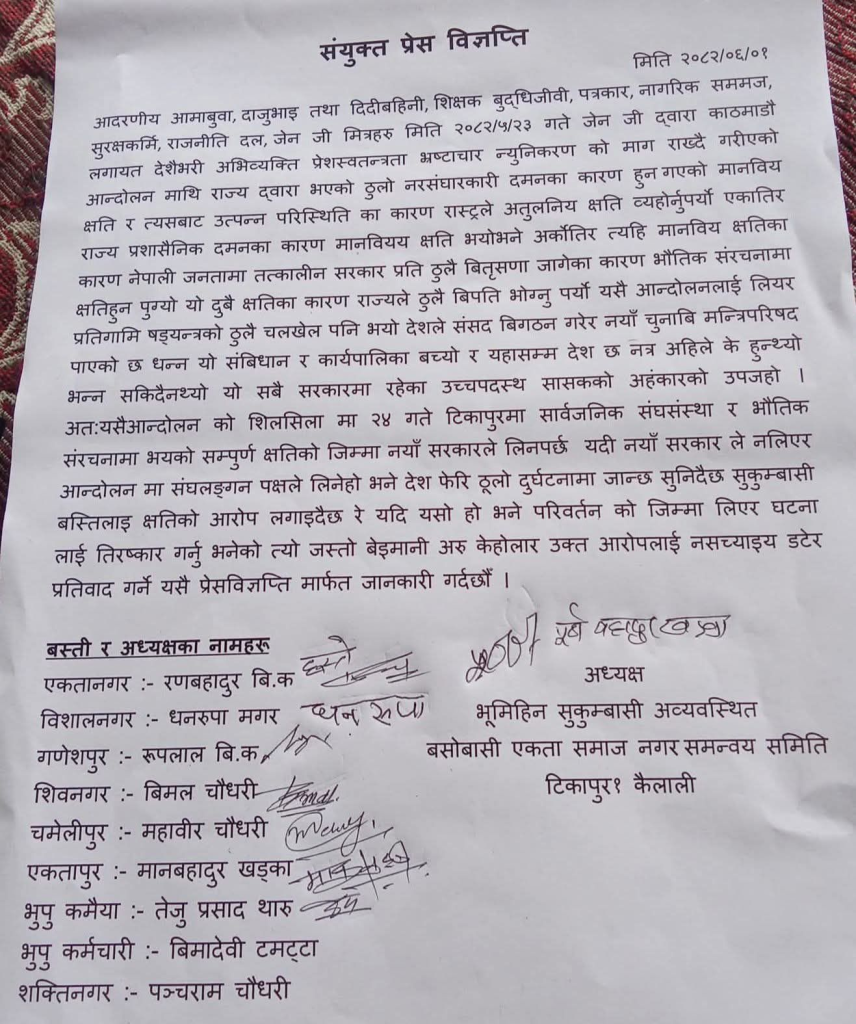 संयुक्त प्रेस विज्ञप्ति
मिति २०८२/०६/०१
आदरणीय आमाबुवा, दाजुभाइ तथा दिदीबहिनी, शिक्षक बुद्धिजीवी, पत्रकार, नागरिक सममज,
सुरक्षकर्मि, राजनीति दल, जेन जी मित्रहरु मिति २०८२/५/२३ गते जेन जी द्वारा काठमाडौ
लगायत देशैभरी अभिव्यक्ति प्रेशस्वतन्त्रता भ्रष्टाचार न्युनिकरण को माग राख्दै गरीएको
आन्दोलन माथि राज्य द्वारा भएको ठुलो नरसंघारकारी दमनका कारण हुन गएको मानविय
क्षति र त्यसबाट उत्पन्न परिस्थिति का कारण रास्ट्रले अतुलनिय क्षति व्यहोर्नुपर्यो एकातिर
राज्य प्रशासैनिक दमनका कारण मानवियय क्षति भयोभने अर्कोतिर त्यहि मानविय क्षतिका
कारण नेपाली जनतामा तत्कालीन सरकार प्रति ठुलै बितृसणा जागेका कारण भौतिक संरचनामा
क्षतिहुन पुग्यो यो दुबै क्षतिका कारण राज्यले ठुलै बिपति भोग्नु पर्यो यसै आन्दोलनलाई लियर
प्रतिगामि षड्यन्त्रको ठुलै चलखेल पनि भयो देशले संसद बिगठन गरेर नयाँ चुनाबि मन्त्रिपरिषद
पाएको छ धन्न यो संबिधान र कार्यपालिका बच्यो र यहासम्म देश छ नत्र अहिले के हुन्थ्यो
भन्न सकिदैनथ्यो यो सबै सरकारमा रहेका उच्चपदस्थ सासकको अहंकारको उपजहो ।
अत:यसैआन्दोलन को शिलसिला मा २४ गते टिकापुरमा सार्वजनिक संघसंस्था र भौतिक
संरचनामा भयको सम्पुर्ण क्षतिको जिम्मा नयाँ सरकारले लिनपर्छ यदी नयाँ सरकार ले नलिएर
आन्दोलन मा संघलङ्गन पक्षले लिनेहो भने देश फेरि ठूलो दुर्घटनामा जान्छ सुनिदैछ सुकुम्बासी
बस्तिलाइ क्षतिको आरोप लगाइदैछ रे यदि यसो हो भने परिवर्तन को जिम्मा लिएर घटना
लाई तिरष्कार गर्नु भनेको त्यो जस्तो बेइमानी अरु केहोलार उक्त आरोपलाई नसच्याइय डटेर
प्रतिवाद गर्ने यसै प्रेसविज्ञप्ति मार्फत जानकारी गर्दछौं ।
बस्ती र अध्यक्षका नामहरू
एकतानगर :- रणबहादुर बि.क
अध्यक्ष
विशालनगर :- धनरुपा मगर धन रूपा
भूमिहिन सुकुम्बासी अव्यवस्थित
गणेशपुर :- रूपलाल बि.क
बसोबासी एकता समाज नगर समन्वय समिति
शिवनगर :- बिमल चौधरी
टिकापुर१ कैलाली
चमेलीपुर :- महावीर चौधरी
एकतापुर :- मानबहादुर खड्का
भुपु कमैया :- तेजु प्रसाद थारु
भुपु कर्मचारी :- बिमादेवी टमट्टा
शक्तिनगर :- पञ्चराम चौधरी